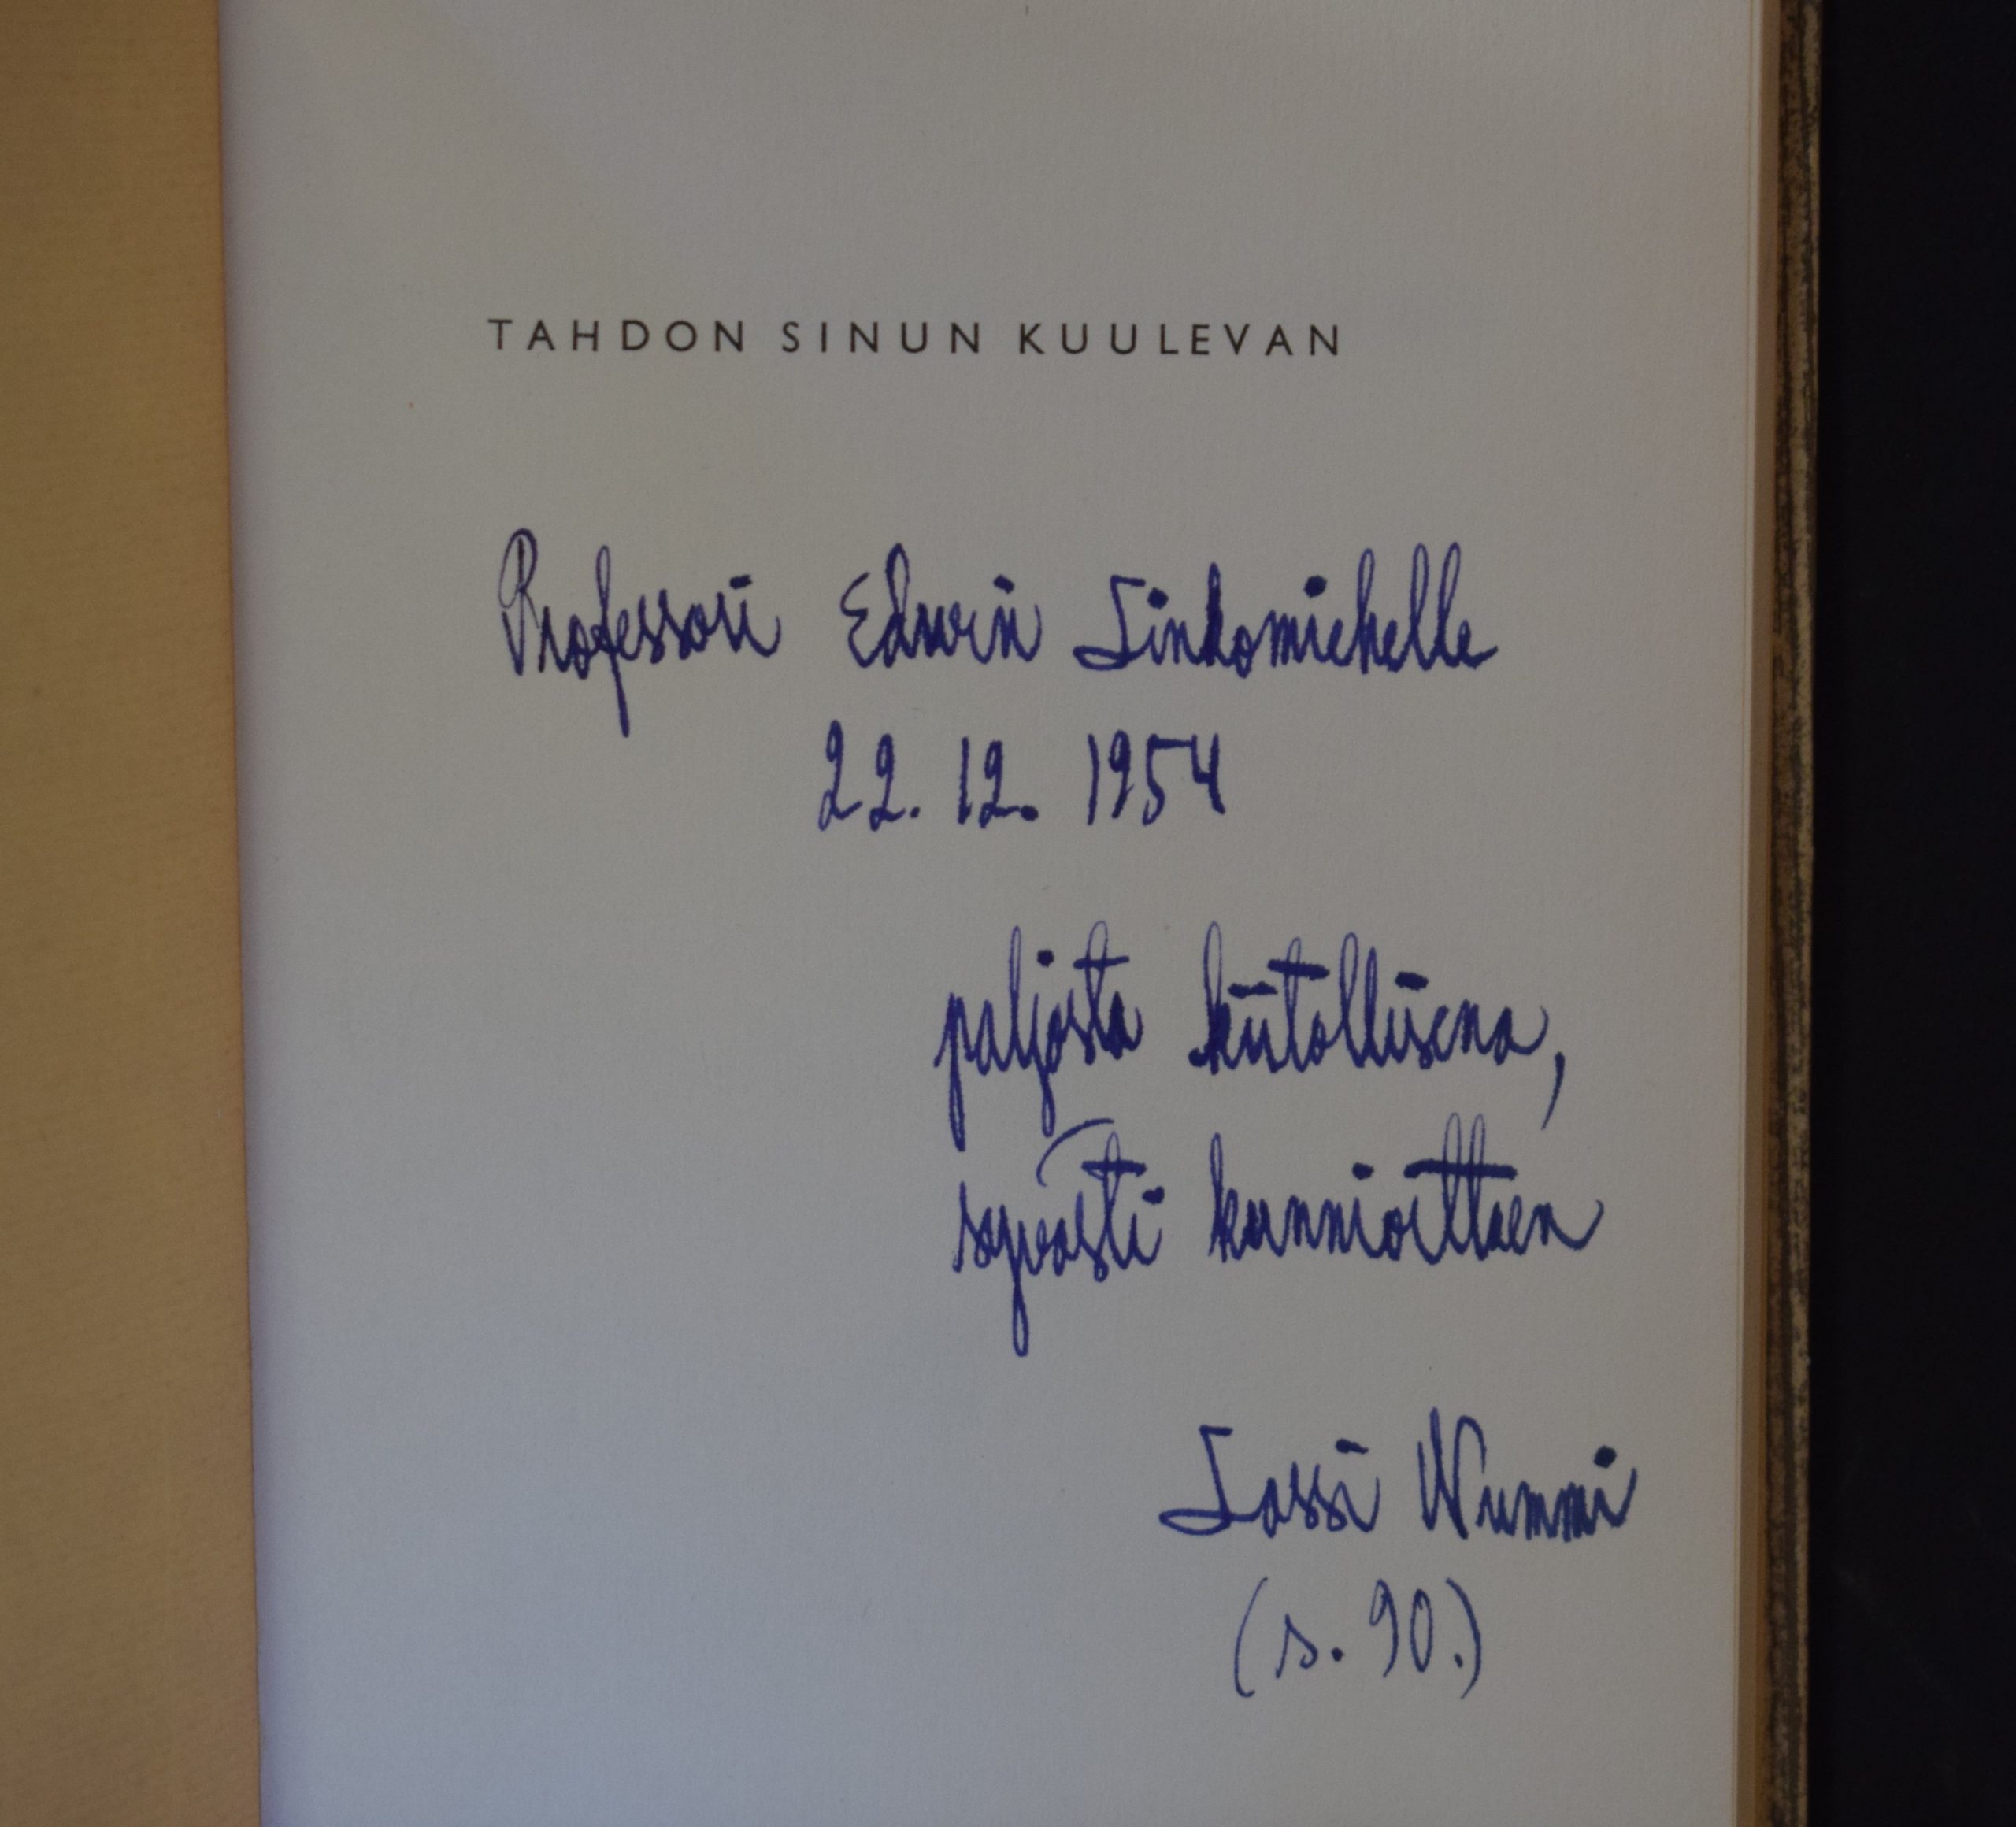 TAHDON SINUN KUULEVAN
Professori Edwin Linkomiehelle
22. 12. 1954
paljosta kiitollisena,
syvästi kunnioittaen
Lassi Nummi
(s. 90.)